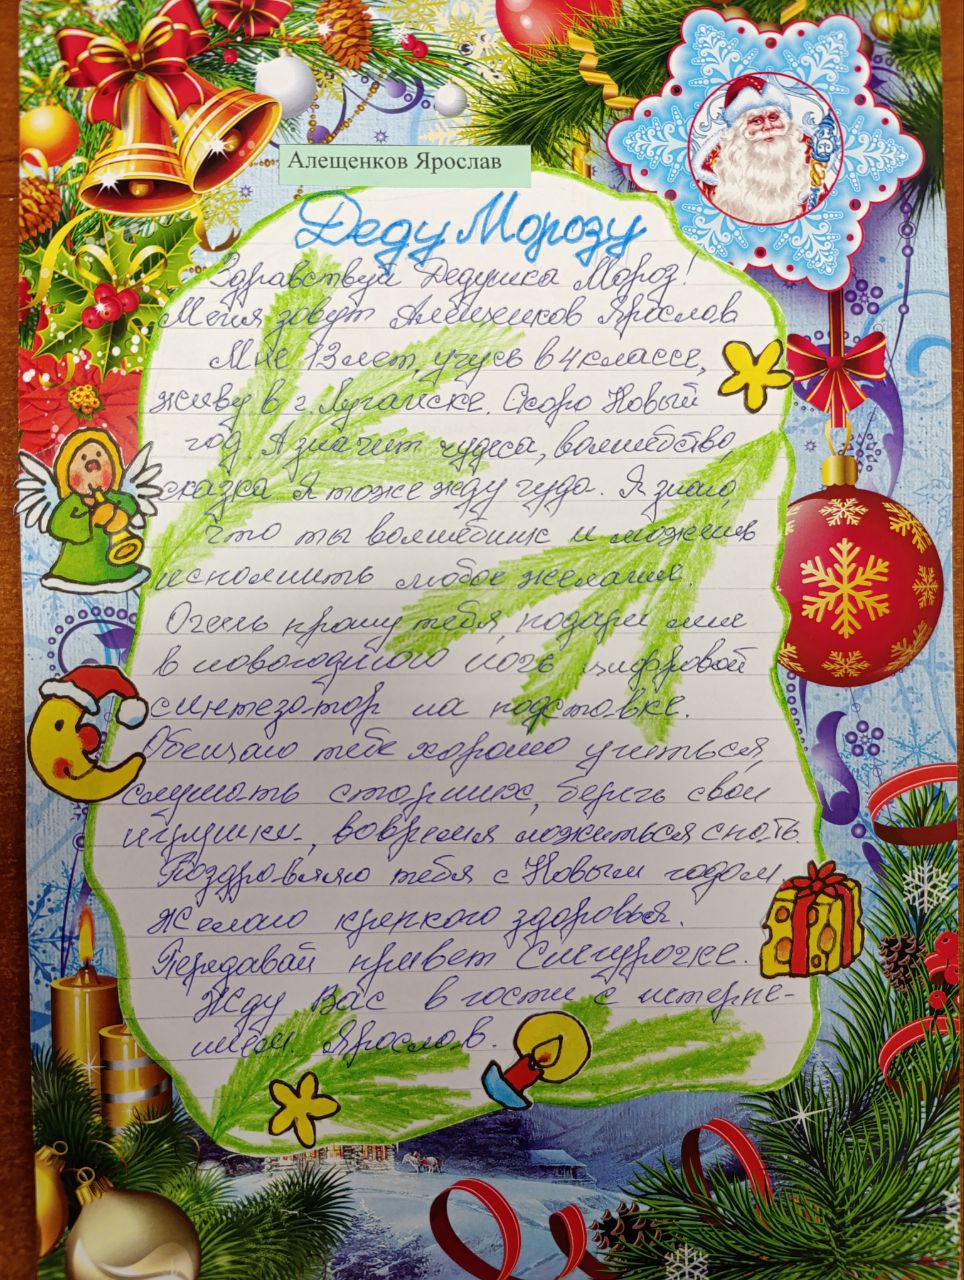 Алещенков Ярослав
Деду Морозу
Здравствуй Дедушка Мороз!
Меня зовут Алещенков Ярослав
Мне 13 лет, учусь в 4 классе,
живу в г. Луганске. Скоро Новый
год. А значит чудеса, волшебство,
сказка. Я тоже жду чуда. Я знаю,
что ты волшебник и можешь
исполнить любое желание.
Очень прошу тебя, подари мне
в новогоднюю ночь цифровой
синтезатор на подставке.
Обещаю тебе хорошо учиться,
слушать старших, беречь свои
игрушки, вовремя ложиться спать.
Поздравляю тебя с Новым годом,
желаю крепкого здоровья.
Передавай привет Снегурочке.
Жду Вас в гости с нетерпе-
нием. Ярослав.